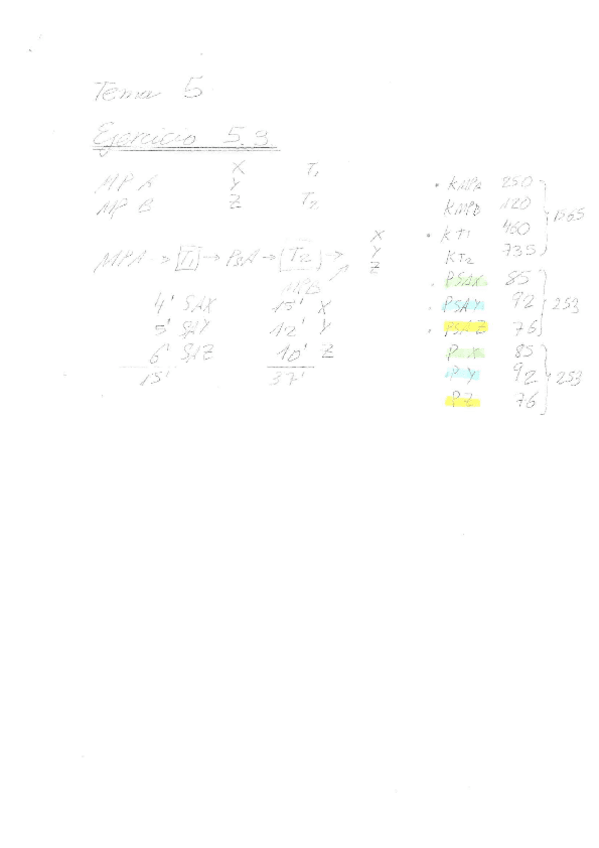 Tema 5
Ejercicio 5.3
MP A X T1
Y
MP B Z T2
MPA → T1 → PSA → T2 → X Y Z
MPB
4' SAX 15' X
5' SAY 12' Y
6' SAZ 10' Z
15' 37'
• KMPA 250
KMPB 120
• KT1 460
KT2 735
1565
. PSAX 85
. PSAY 92
. PSAZ 76
253
P X 85
P Y 92
PZ 76
253